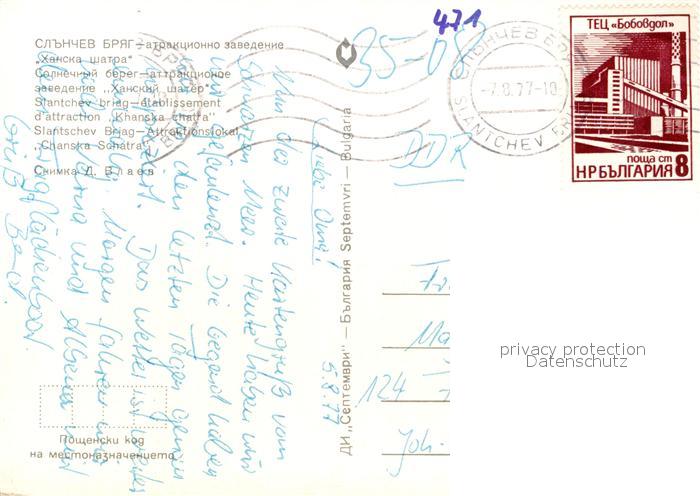 471
35-08
СЛЪНЧЕВ БРЯГ – атракционно заведение
„Ханска шатра"
Солнечный берег – аттракционое
заведение „Ханский шатер"
Slantchev briag – établissement
d'attraction „Khanska chatra"
Slantschev Briag – Attraktionslokal
„Chanska Schatra"
Снимка Д. Влаев
Пощенски код
на местоназначението
ДИ „Септември" – България Septemvri – Bulgaria
5.8.77
Liebe Oma!
Nun der zweite Kartengruß vom
Schwarzen Meer. Heute haben wir
uns
Die Gegend haben
den letzten Tagen
Das Wetter ist weiter
Morgen fahren wir
und Albena mit
Tragflächenboot.
Gruß Bernd.
DDR
124
Joh.
СЛЪНЧЕВ БРЯГ
-7.8.77-10
SLANTCHEV BRIAG
ТЕЦ «Бобовдол»
поща ст 8
НР БЪЛГАРИЯ
privacy protection
Datenschutz